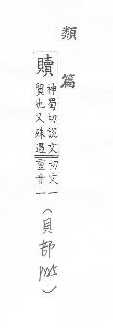 類篇
贖
神蜀切說文
貿也又殊遇
切文一
重音一
(貝部P225)